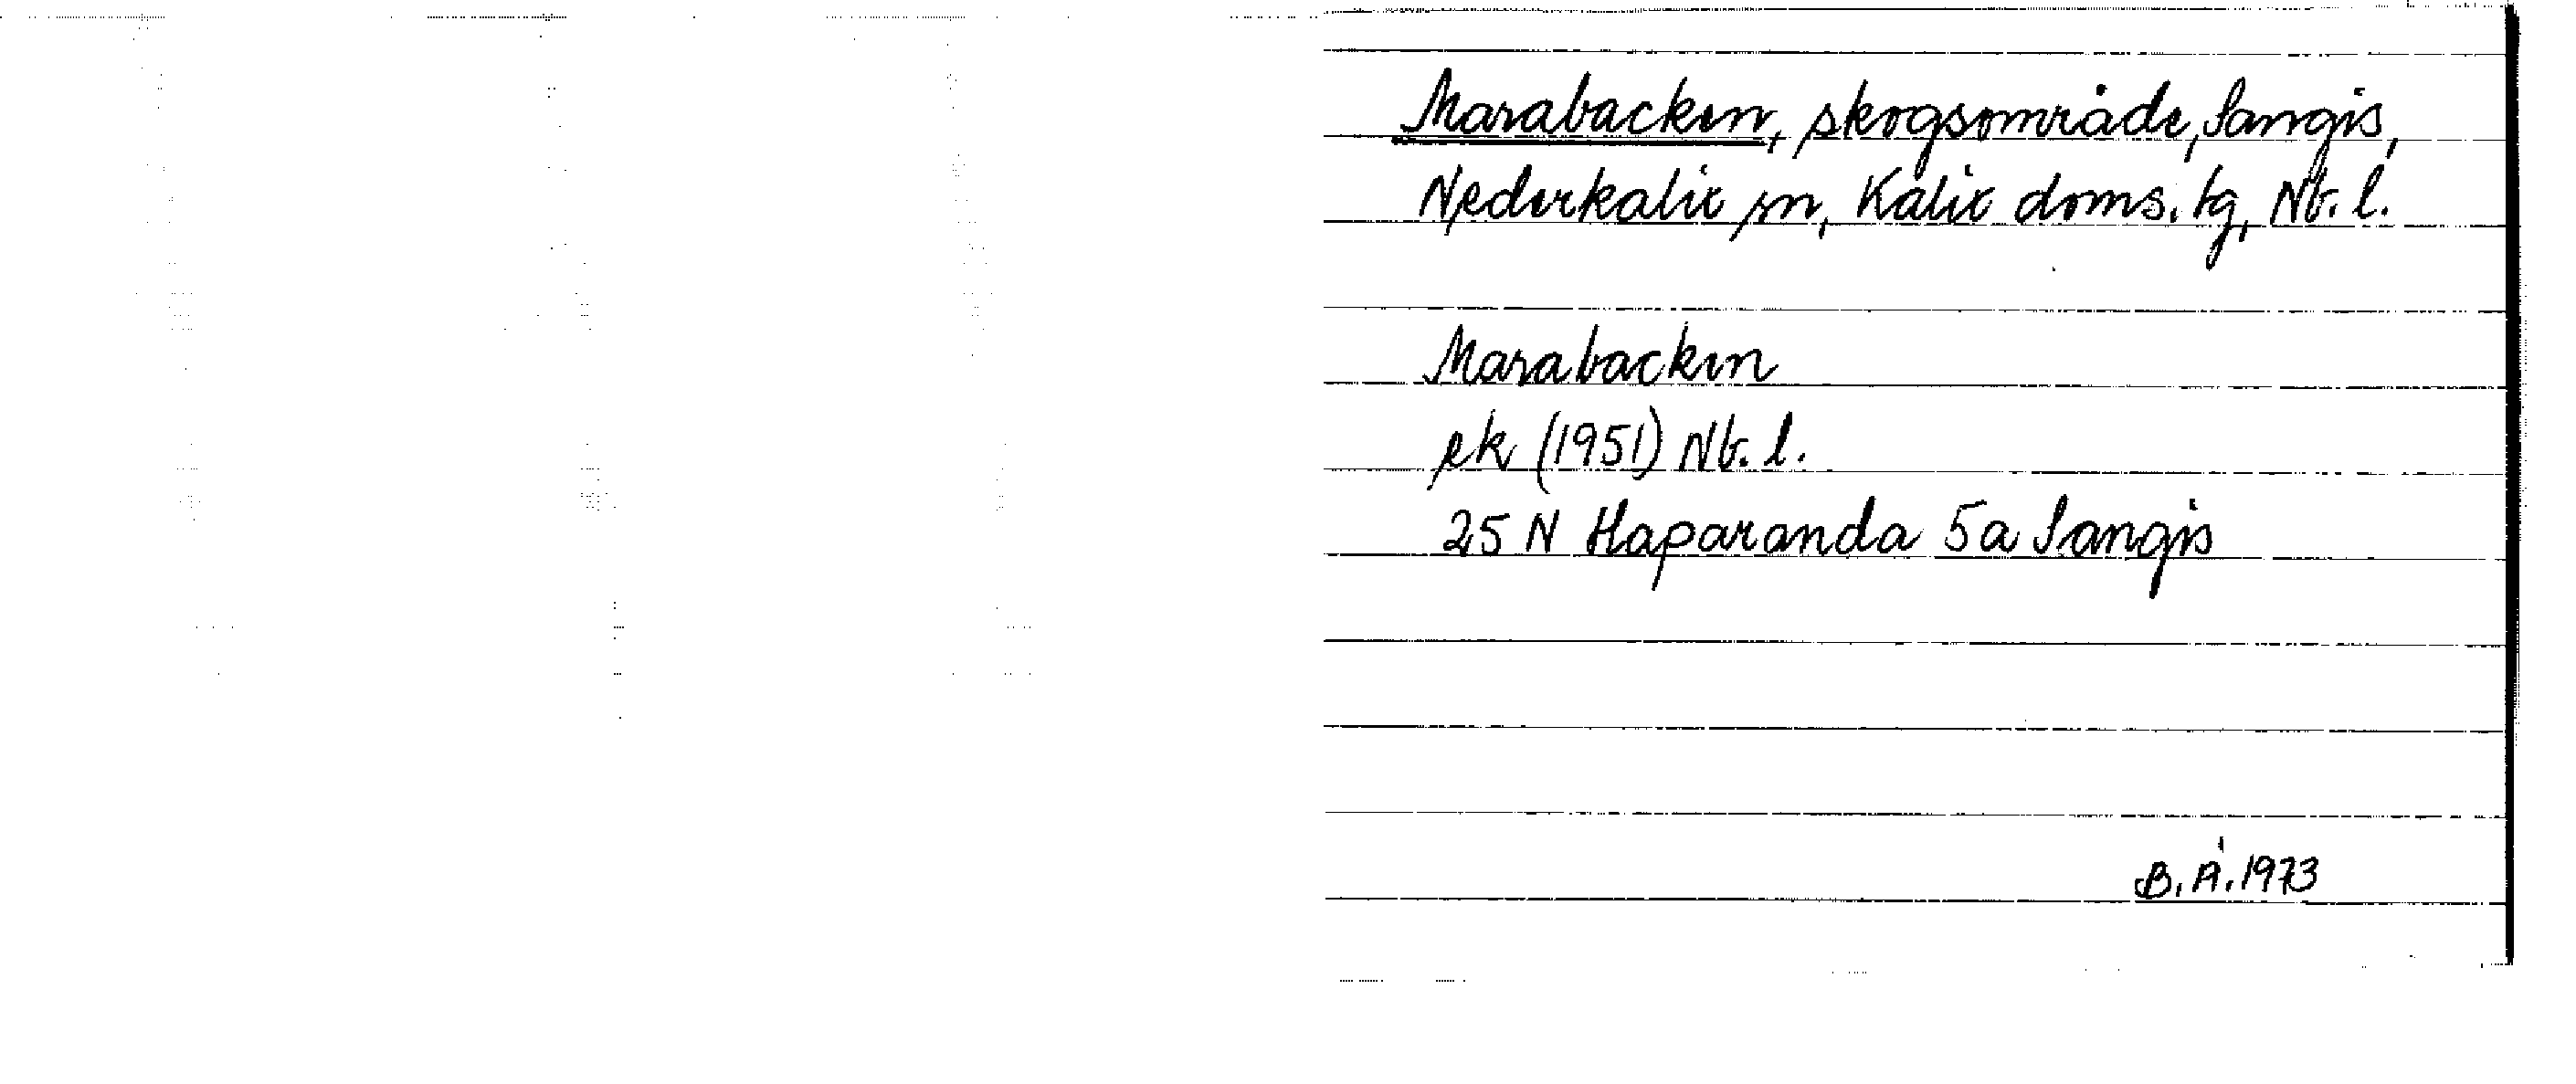 Marabacken, skogsområde, Sangis,
Nederkalix sn, Kalix doms. tg, Nb. l.
Marabacken
ek (1951) Nb. l.
25 N Haparanda 5a Sangis
B. Å. 1973